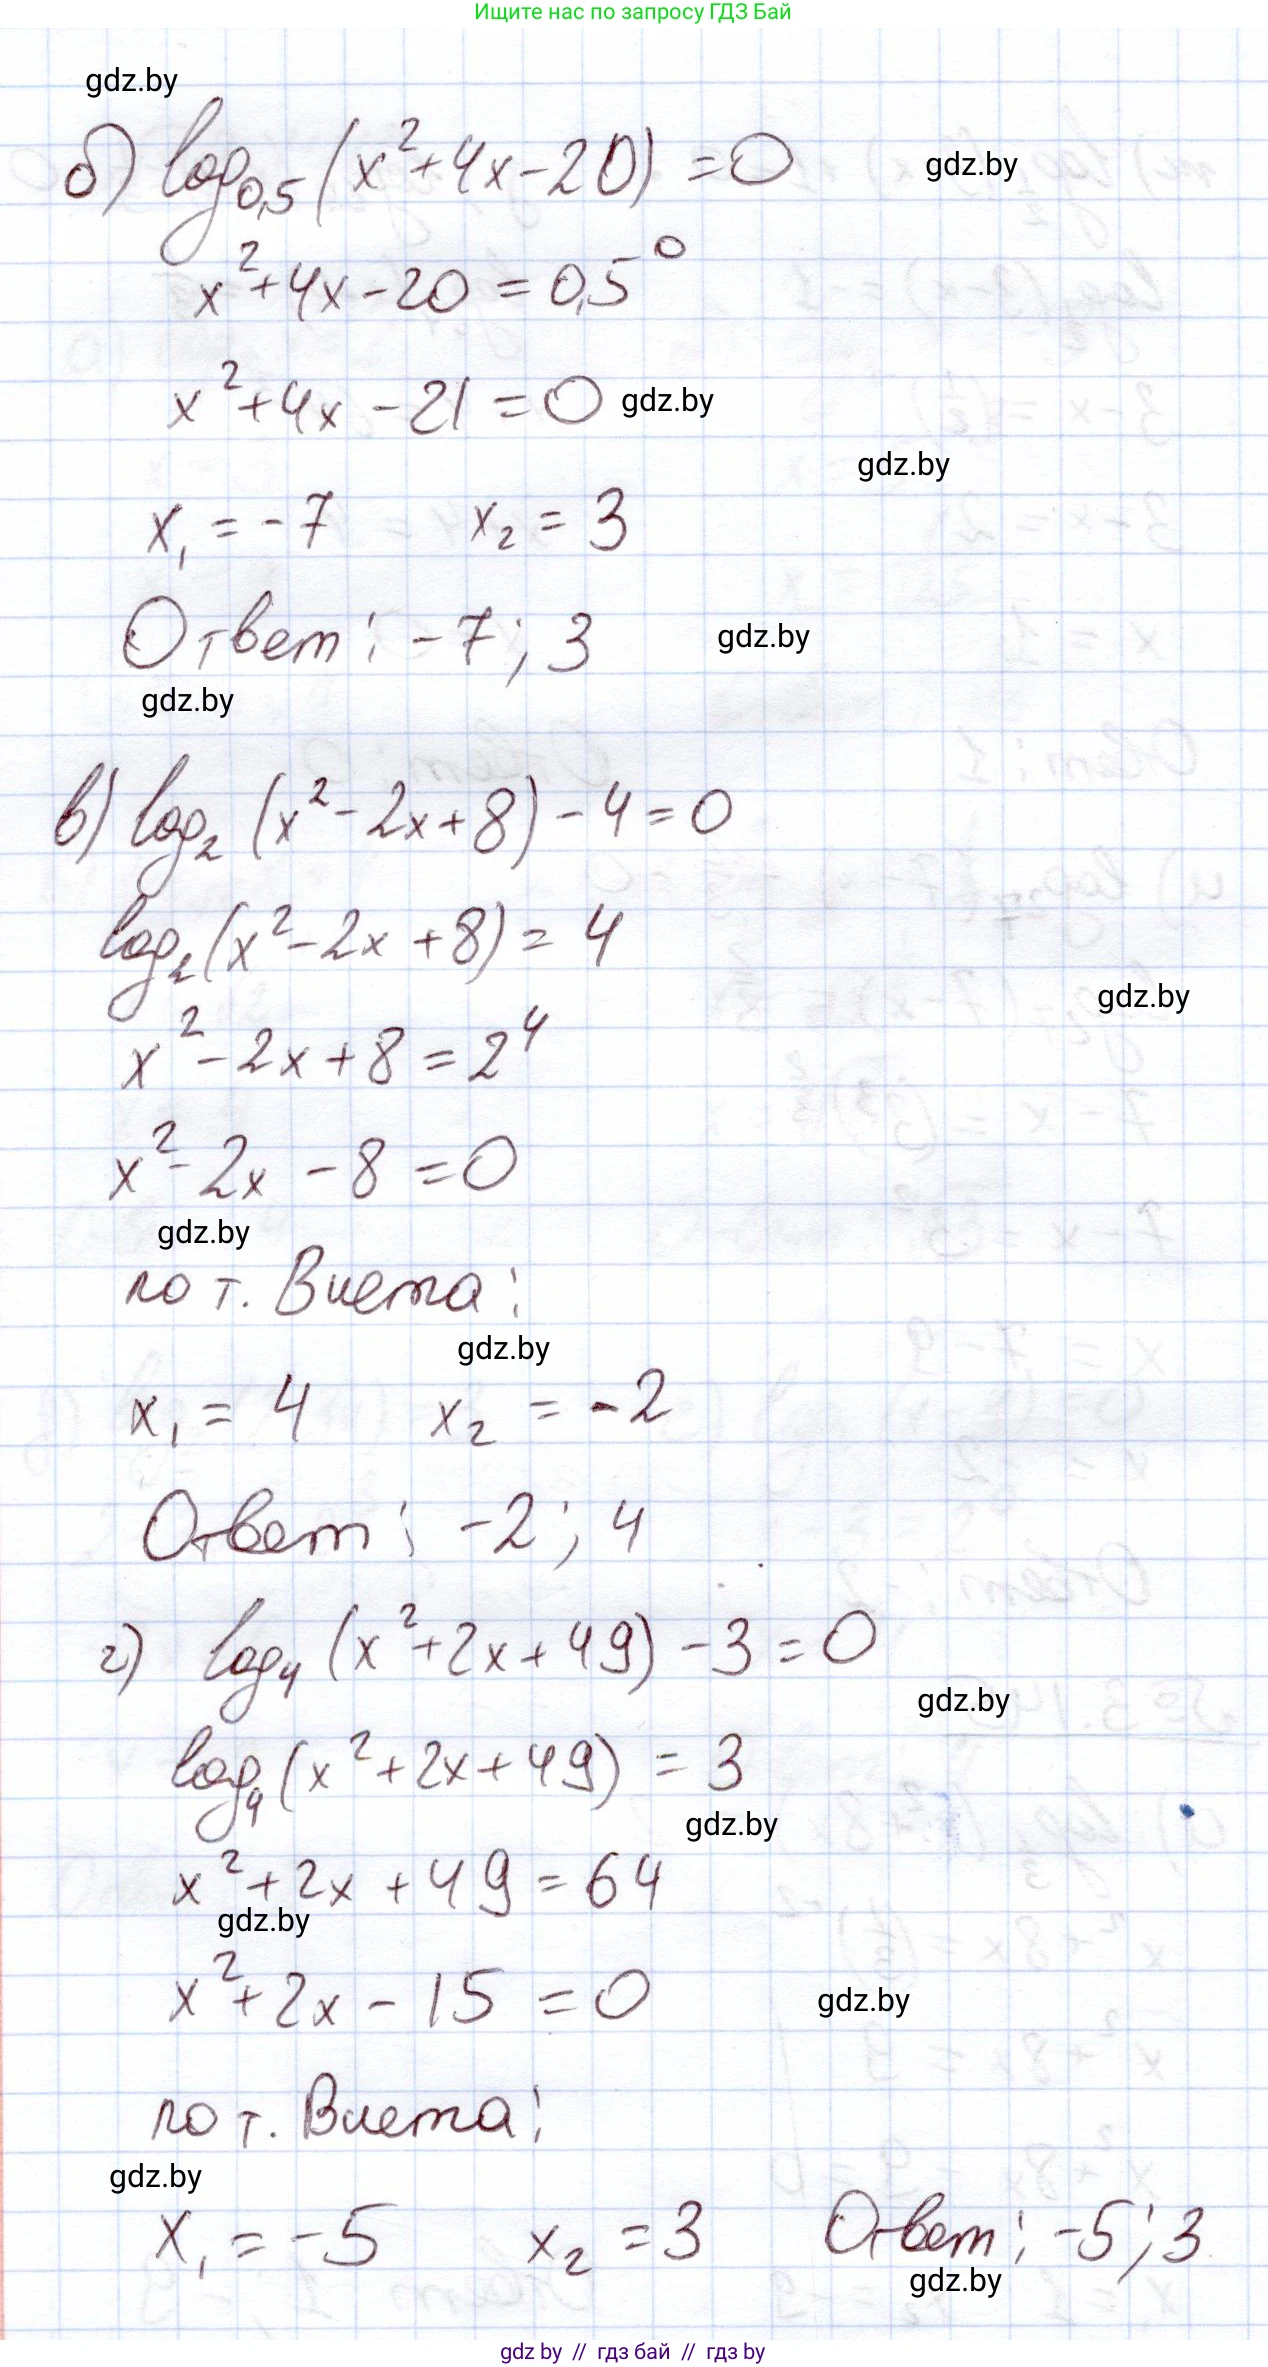 Ищите нас по запросу ГДЗ Бай
gdz.by
б) log₀,₅ (x² + 4x - 20) = 0 gdz.by
x² + 4x - 20 = 0,5⁰
x² + 4x - 21 = 0 gdz.by
gdz.by
x₁ = -7 x₂ = 3
Ответ: -7; 3 gdz.by
gdz.by
в) log₂ (x² - 2x + 8) - 4 = 0
log₂ (x² - 2x + 8) = 4
gdz.by
x² - 2x + 8 = 2⁴
x² - 2x - 8 = 0
gdz.by
по т. Виета:
gdz.by
x₁ = 4 x₂ = -2
Ответ: -2; 4
г) log₄ (x² + 2x + 49) - 3 = 0
gdz.by
log₄ (x² + 2x + 49) = 3
gdz.by
x² + 2x + 49 = 64
gdz.by
x² + 2x - 15 = 0
gdz.by
по т. Виета:
gdz.by
x₁ = -5 x₂ = 3 Ответ: -5; 3
gdz.by
gdz.by // гдз бай // гдз by